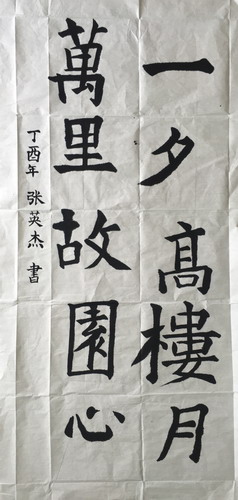 一夕高樓月
萬里故園心
丁酉年 张英杰 書